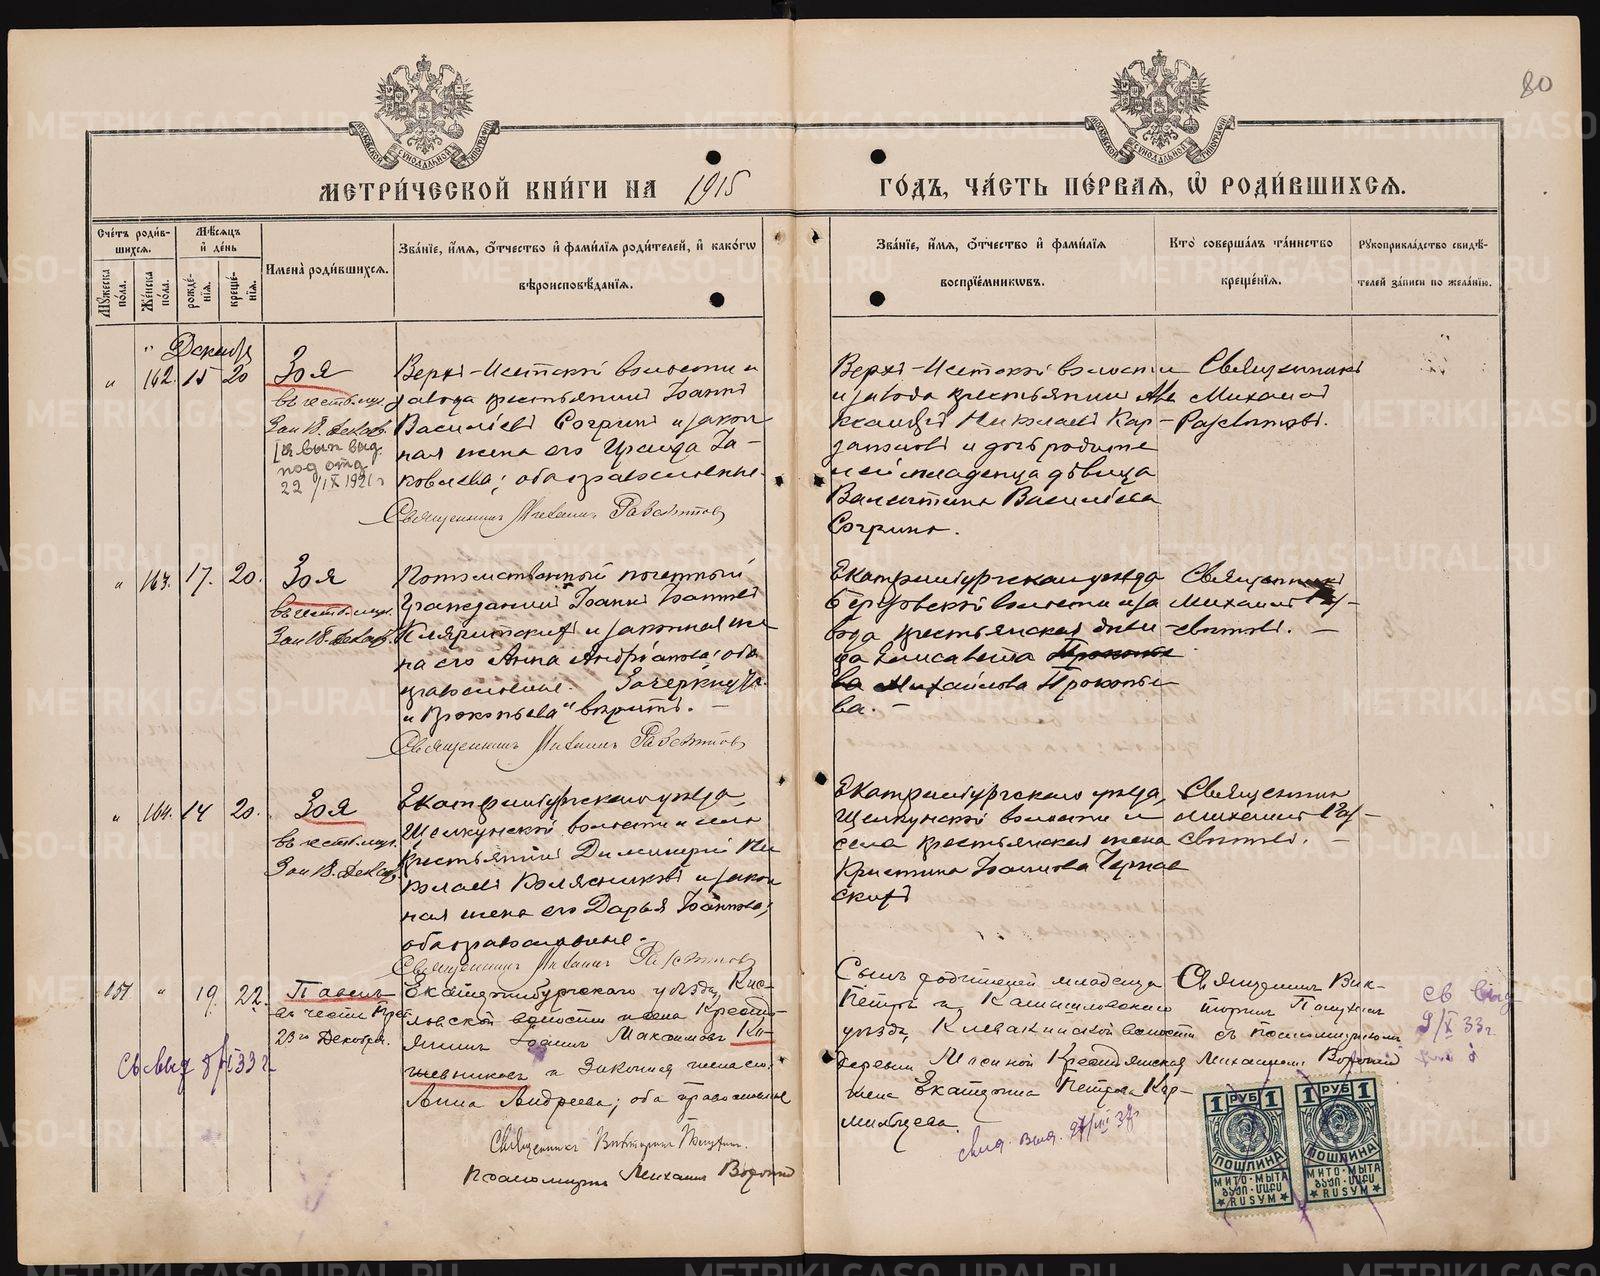 80
МОСКОВСКОЙ СѴНОДАЛЬНОЙ ТИПОГРАФІИ
МОСКОВСКОЙ СѴНОДАЛЬНОЙ ТИПОГРАФІИ
МЕТРИ́ЧЕСКОЙ КНИ́ГИ НА 1915 ГО́ДЪ, ЧА́СТЬ ПЕ́РВАѦ, Ѿ РОДИ́ВШИХСѦ.
Сче́тъ роди́в-
шихсѧ.
Мꙋ́жеска по́ла.
Же́нска по́ла.
Мѣ́сѧцъ
и҆ де́нь
рожде́-
нїѧ.
креще́-
нїѧ.
Имена̀ роди́вшихсѧ.
Зва́нїе, и҆́мѧ, ѻ҆́тчество и҆ фами́лїѧ роди́телей, и҆ како́гѡ
вѣроисповѣ́данїѧ.
Зва́нїе, и҆́мѧ, ѻ҆́тчество и҆ фами́лїѧ
воспрїе́мникѡвъ.
Кто̀ соверша́лъ та́инство
креще́нїѧ.
Рꙋкоприкла́дство свидѣ́-
телей за́писи по жела́нїю.
Декабря
" 162. 15 20
Зоя
въ честь мц.
Зои 18. декаб.
22/IX 1921 г
Верхъ-Исетской волости и
завода крестьянинъ Іоаннъ
Васильевъ Согринъ и закон
ная жена его Ираида Іа-
ковлева; оба православные.
Священникъ Михаилъ Рафвентовъ
Верхъ-Исетской волости
и завода крестьянинъ Але
ксандръ Николаевъ Кар-
заповъ и дочь родите
лей младенца дѣвица
Валентина Васильева
Согрина.
Священникъ
Михаилъ
" 163. 17. 20.
Зоя
въ честь мц.
Зои 18. декаб.
Потомственный почетный
гражданинъ Іоаннъ Іоанновъ
и законная же
на его Анна Андріанова; оба
православные. Зачеркнуто
"Прокопьева" вѣрить. —
Священникъ Михаилъ
Екатеринбургскаго уѣзда
Березовской волости и за
вода крестьянская дѣви
ца Елисавета Прокопье
ва Михайлова Прокопье
ва. —
Священникъ
Михаилъ
" 164. 14 20.
Зоя
въ честь мц.
Зои 18. декаб.
Екатеринбургскаго уѣзда,
Щелкунской волости и села
крестьянинъ Димитрій Ни
колаевъ Колясниковъ и закон
ная жена его Дарья Іоаннова;
оба православные.
Священникъ Михаилъ
Екатеринбургскаго уѣзда,
Щелкунской волости и
села крестьянская жена
Кристина Іоаннова Чернав
скихъ
Священникъ
Михаилъ
157 " 19. 22.
Павелъ
въ честь
23го Декабря.
Екатеринбургскаго уѣзда, Кис-
ловской волости и села Кресть-
янинъ Іоаннъ Максимовъ Ко-
жевниковъ и Законная жена его
Анна Андреева; оба православные
Священникъ Викторинъ
Псаломщикъ Михаилъ
Сынъ родителей младенца
Петръ и Камышловскаго
уѣзда, Клевакинской волости
деревни Крестьянская
жена Екатерина Петрова Кар-
мильцева
Священникъ Вик-
торинъ
съ Псаломщикомъ
Михаиломъ
Св выд 8/X 33 г.
св выд
9/X 33 г.
1 РУБ 1
ПОШЛИНА
МИТО·МЫТА
RUSYM
1 РУБ 1
ПОШЛИНА
МИТО·МЫТА
RUSYM
METRIKI.GASO-URAL.RU